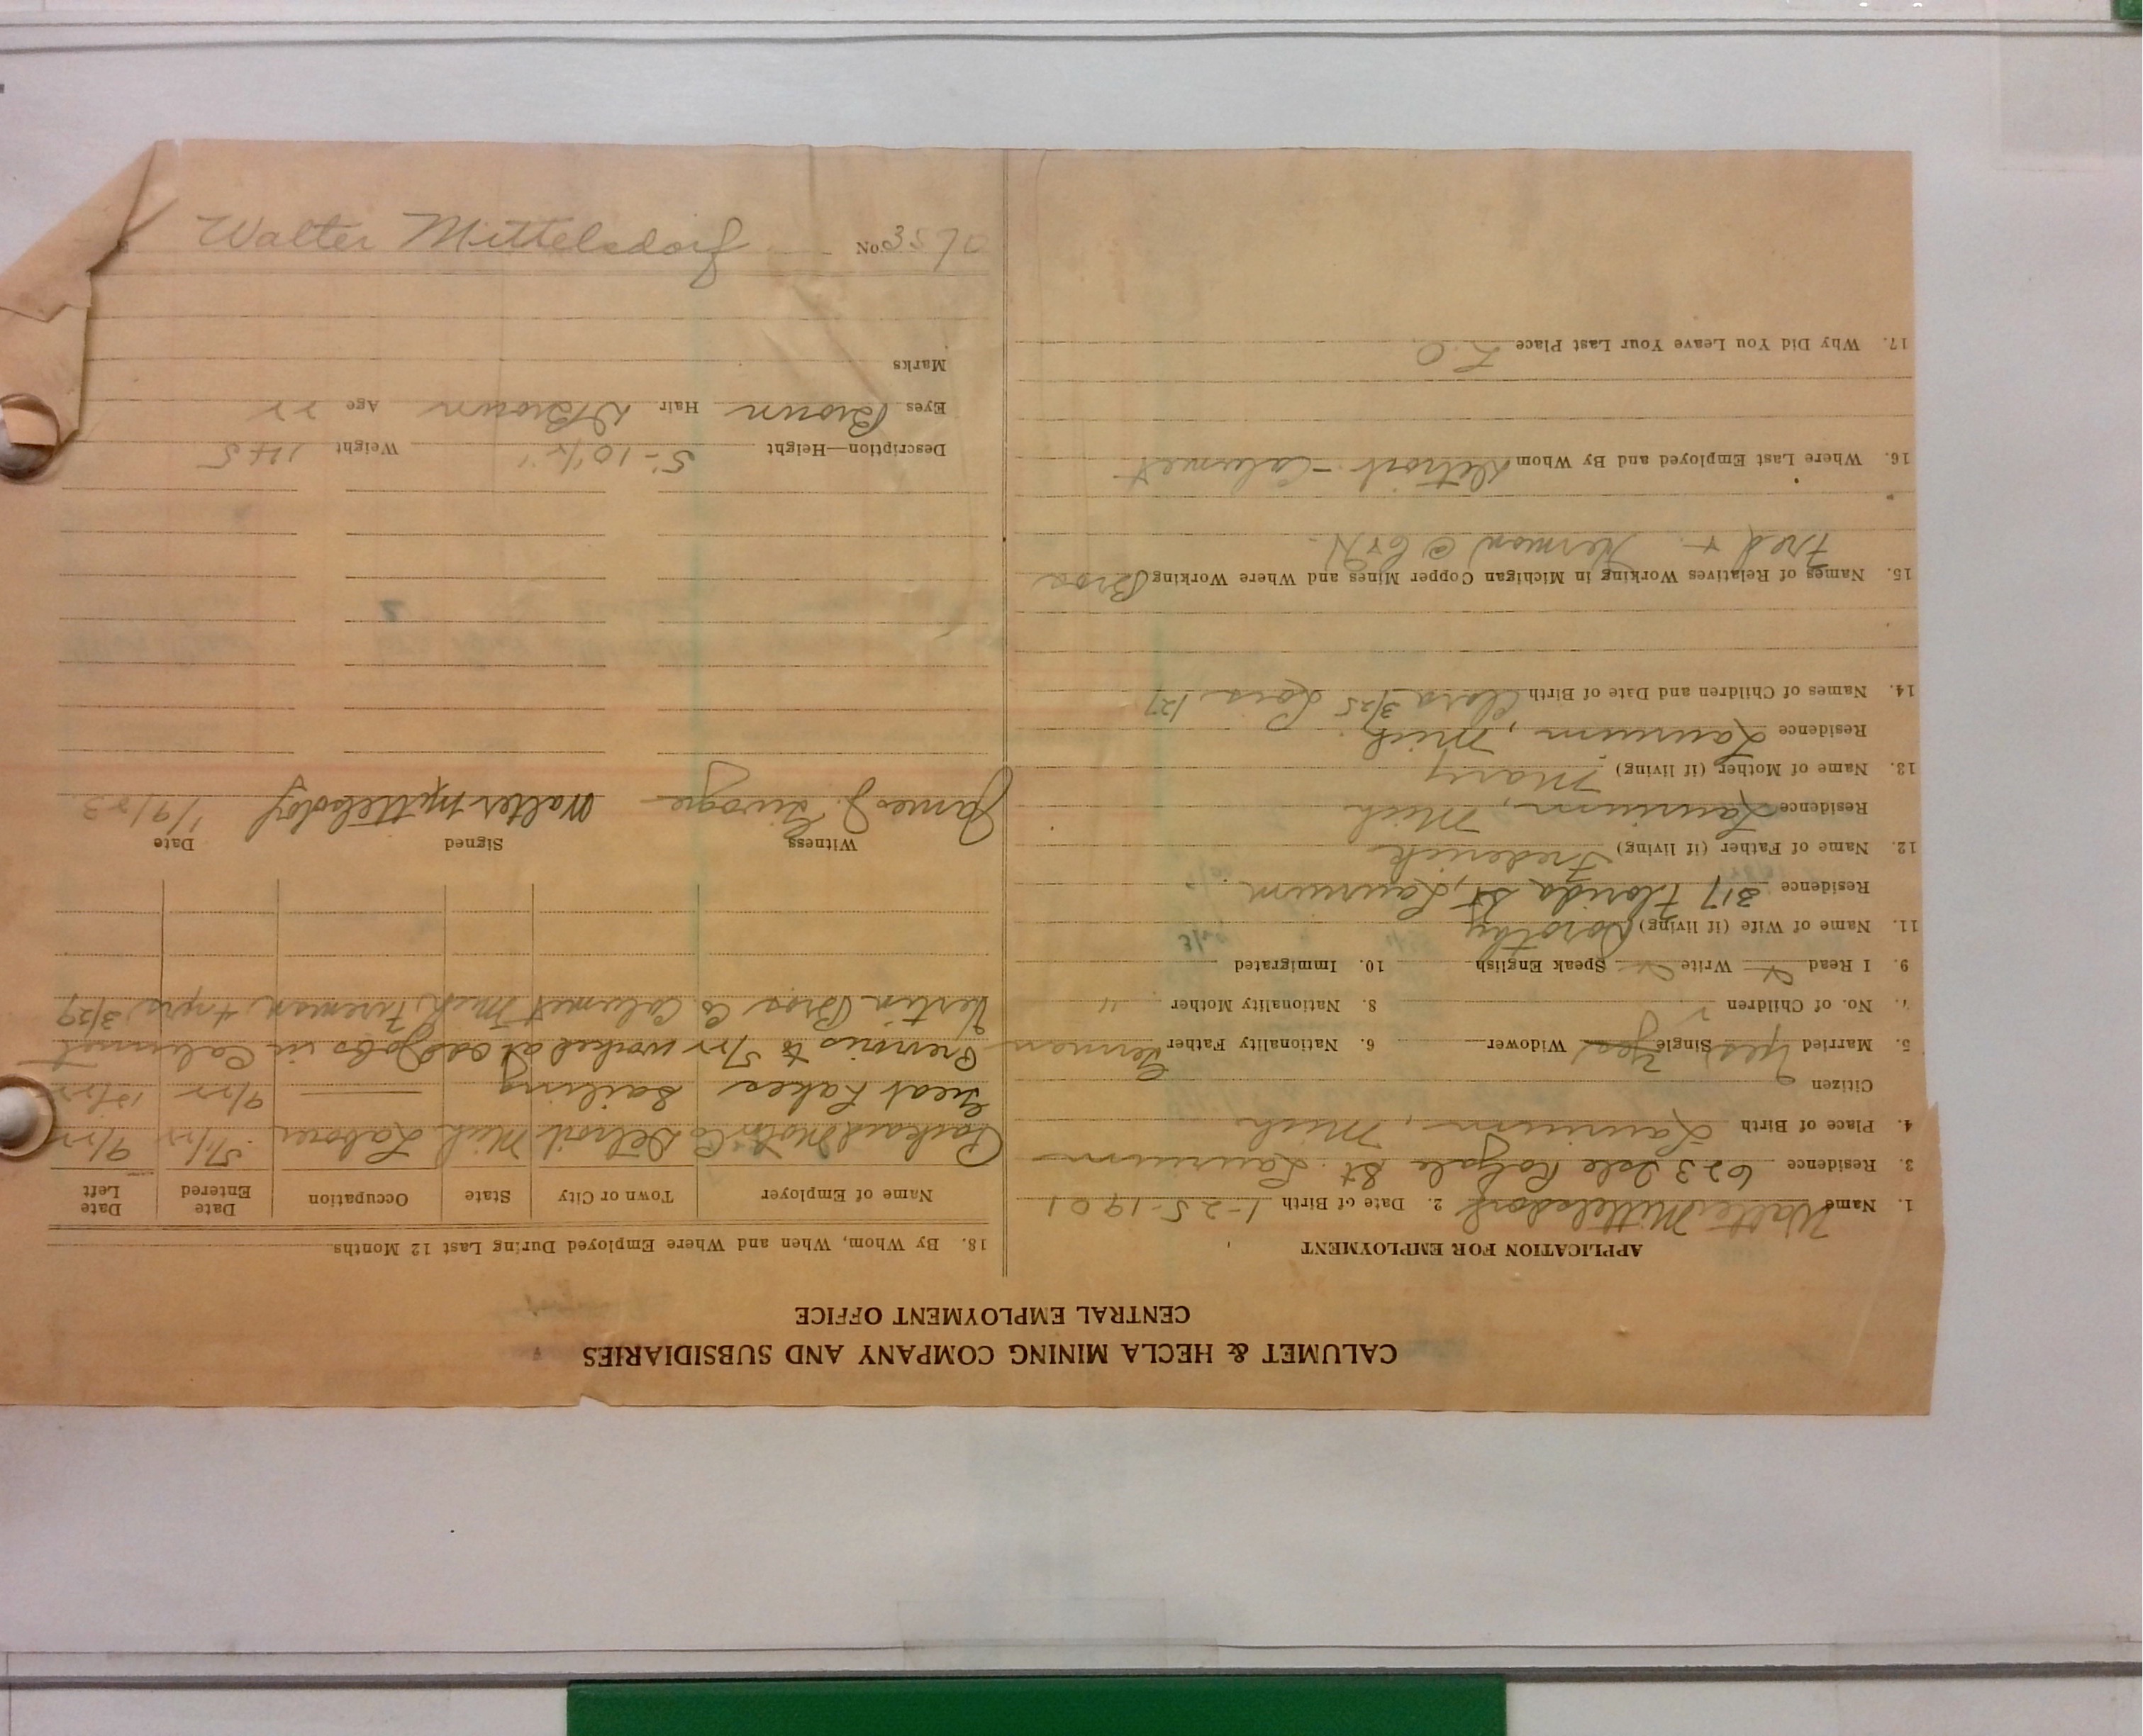 CALUMET & HECLA MINING COMPANY AND SUBSIDIARIES
CENTRAL EMPLOYMENT OFFICE
APPLICATION FOR EMPLOYMENT
1. Name Walter Mittelsdorf 2. Date of Birth 1-25-1901
3. Residence 623 Isle Royale St. Laurium
4. Place of Birth Laurium, Mich
Citizen
5. Married Yes Single Yes Widower 6. Nationality Father German
7. No. of Children 2 8. Nationality Mother "
9. I Read Write Speak English 10. Immigrated
11. Name of Wife (if living) Dorothy
Residence 317 Florida St, Laurium
12. Name of Father (if living) Frederick
Residence Laurium, Mich
13. Name of Mother (if living) Mary
Residence Laurium, Mich
14. Names of Children and Date of Birth Clara 3/25 Lois /27
15. Names of Relatives Working in Michigan Copper Mines and Where Working Bros
Fred + Herman @
16. Where Last Employed and By Whom Detroit - Calumet
17. Why Did You Leave Your Last Place L.O.
18. By Whom, When and Where Employed During Last 12 Months
Name of Employer Town or City State Occupation Date Entered Date Left
Packard Motor Co Detroit Mich Laborer 5/22 9/22
Great Lakes Sailing 9/22 12/22
Previous to 5/22 worked at odd jobs in Calumet
Vertin Bros Co Calumet Mich Fireman 4 yrs 3/29
Witness Signed Date
James J. Walter Mittelsdorf 1/9/23
Description—Height 5'-10½" Weight 145
Eyes Brown Hair D Brown Age 22
Marks
No. 3570 Walter Mittelsdorf